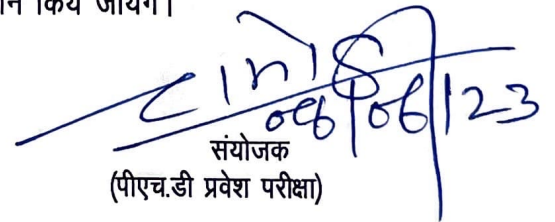 किये जायेंगे।
08/06/23
संयोजक
(पीएच.डी प्रवेश परीक्षा)